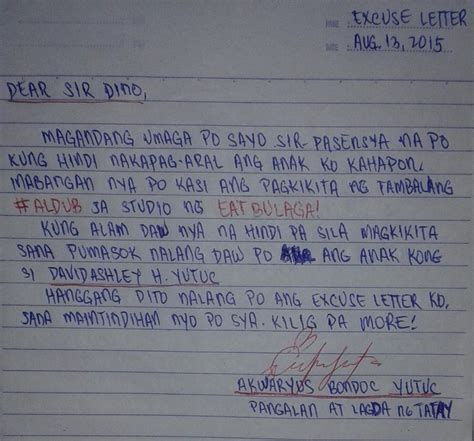 EXCUSE LETTER
AUG. 13, 2015
DEAR SIR DINO,
MAGANDANG UMAGA PO SAYO SIR. PASENSYA NA PO
KUNG HINDI NAKAPAG-ARAL ANG ANAK KO KAHAPON.
MABANGAN NYA PO KASI ANG PAGKIKITA NG TAMBALANG
#ALDUB SA STUDIO NG EAT BULAGA!
KUNG ALAM DAW NYA NA HINDI PA SILA MAGKIKITA
SANA PUMASOK NALANG DAW PO ANG ANAK KONG
SI DAVID ASHLEY H. YUTUC
HANGGANG DITO NALANG PO ANG EXCUSE LETTER KO,
SANA MAINTINDIHAN NYO PO SYA. KILIG PA MORE!
AKWARYUS BONDOC YUTUC
PANGALAN AT LAGDA NG TATAY